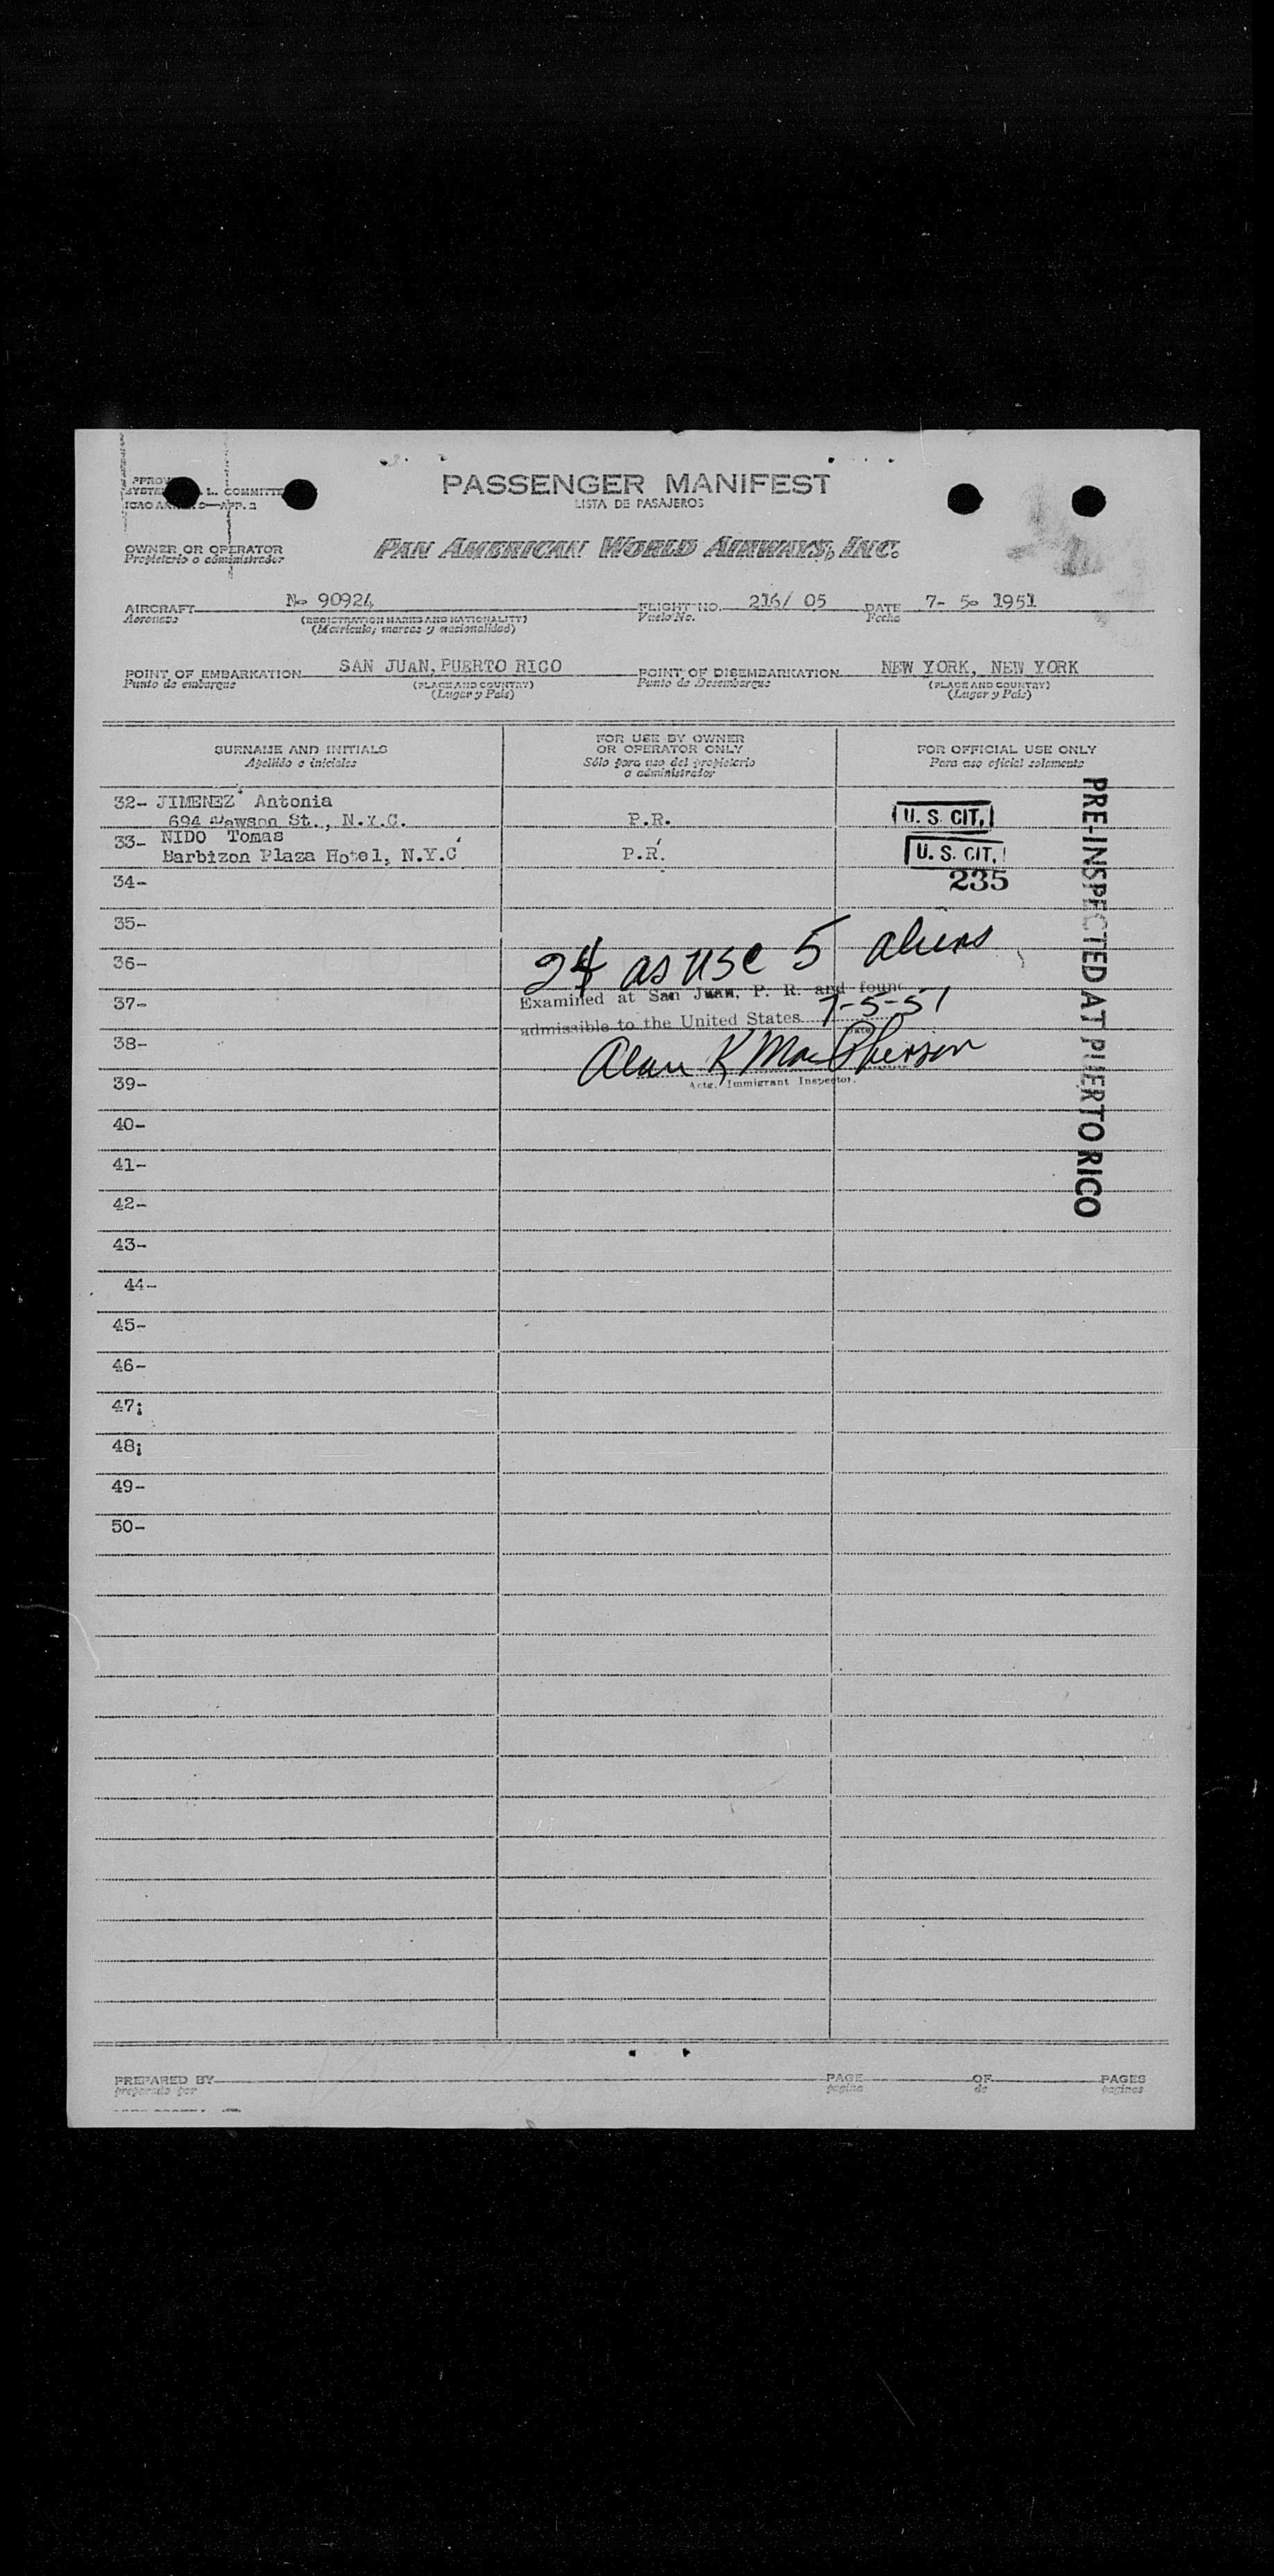 PASSENGER MANIFEST
LISTA DE PASAJEROS
COMMITTE
OWNER OR OPERATOR
Propietario o administrador
PAN AMERICAN WORLD AIRWAYS, INC.
AIRCRAFT N- 90924 FLIGHT NO. 216/ 05 DATE 7- 5- 1951
Aeronave (REGISTRATION MARKS AND NATIONALITY) Vuelo No. Fecha
(Matricula, marcas y nacionalidad)
POINT OF EMBARKATION SAN JUAN, PUERTO RICO POINT OF DISEMBARKATION NEW YORK, NEW YORK
Punto de embarque (PLACE AND COUNTRY) Punto de Desembarque (PLACE AND COUNTRY)
(Lugar y Pais) (Lugar y Pais)
SURNAME AND INITIALS FOR USE BY OWNER OR OPERATOR ONLY FOR OFFICIAL USE ONLY
Apellido e iniciales Sólo para uso del propietario o administrador Para uso oficial solamente
32- JIMENEZ Antonia
694 Dawson St., N.Y.C. P.R. U. S. CIT.
33- NIDO Tomas
Barbizon Plaza Hotel, N.Y.C P.R. U. S. CIT.
34- 235
35-
24 as use 5 aliens
36-
Examined at San Juan, P. R. and found
37-
admissible to the United States 7-5-51
Date
38-
Alan K MacPherson
39- Actg. Immigrant Inspector.
40-
41-
42-
43-
44-
45-
46-
47;
48;
49-
50-
PRE-INSPECTED AT PUERTO RICO
PREPARED BY PAGE OF PAGES
preparado por pagina de paginas